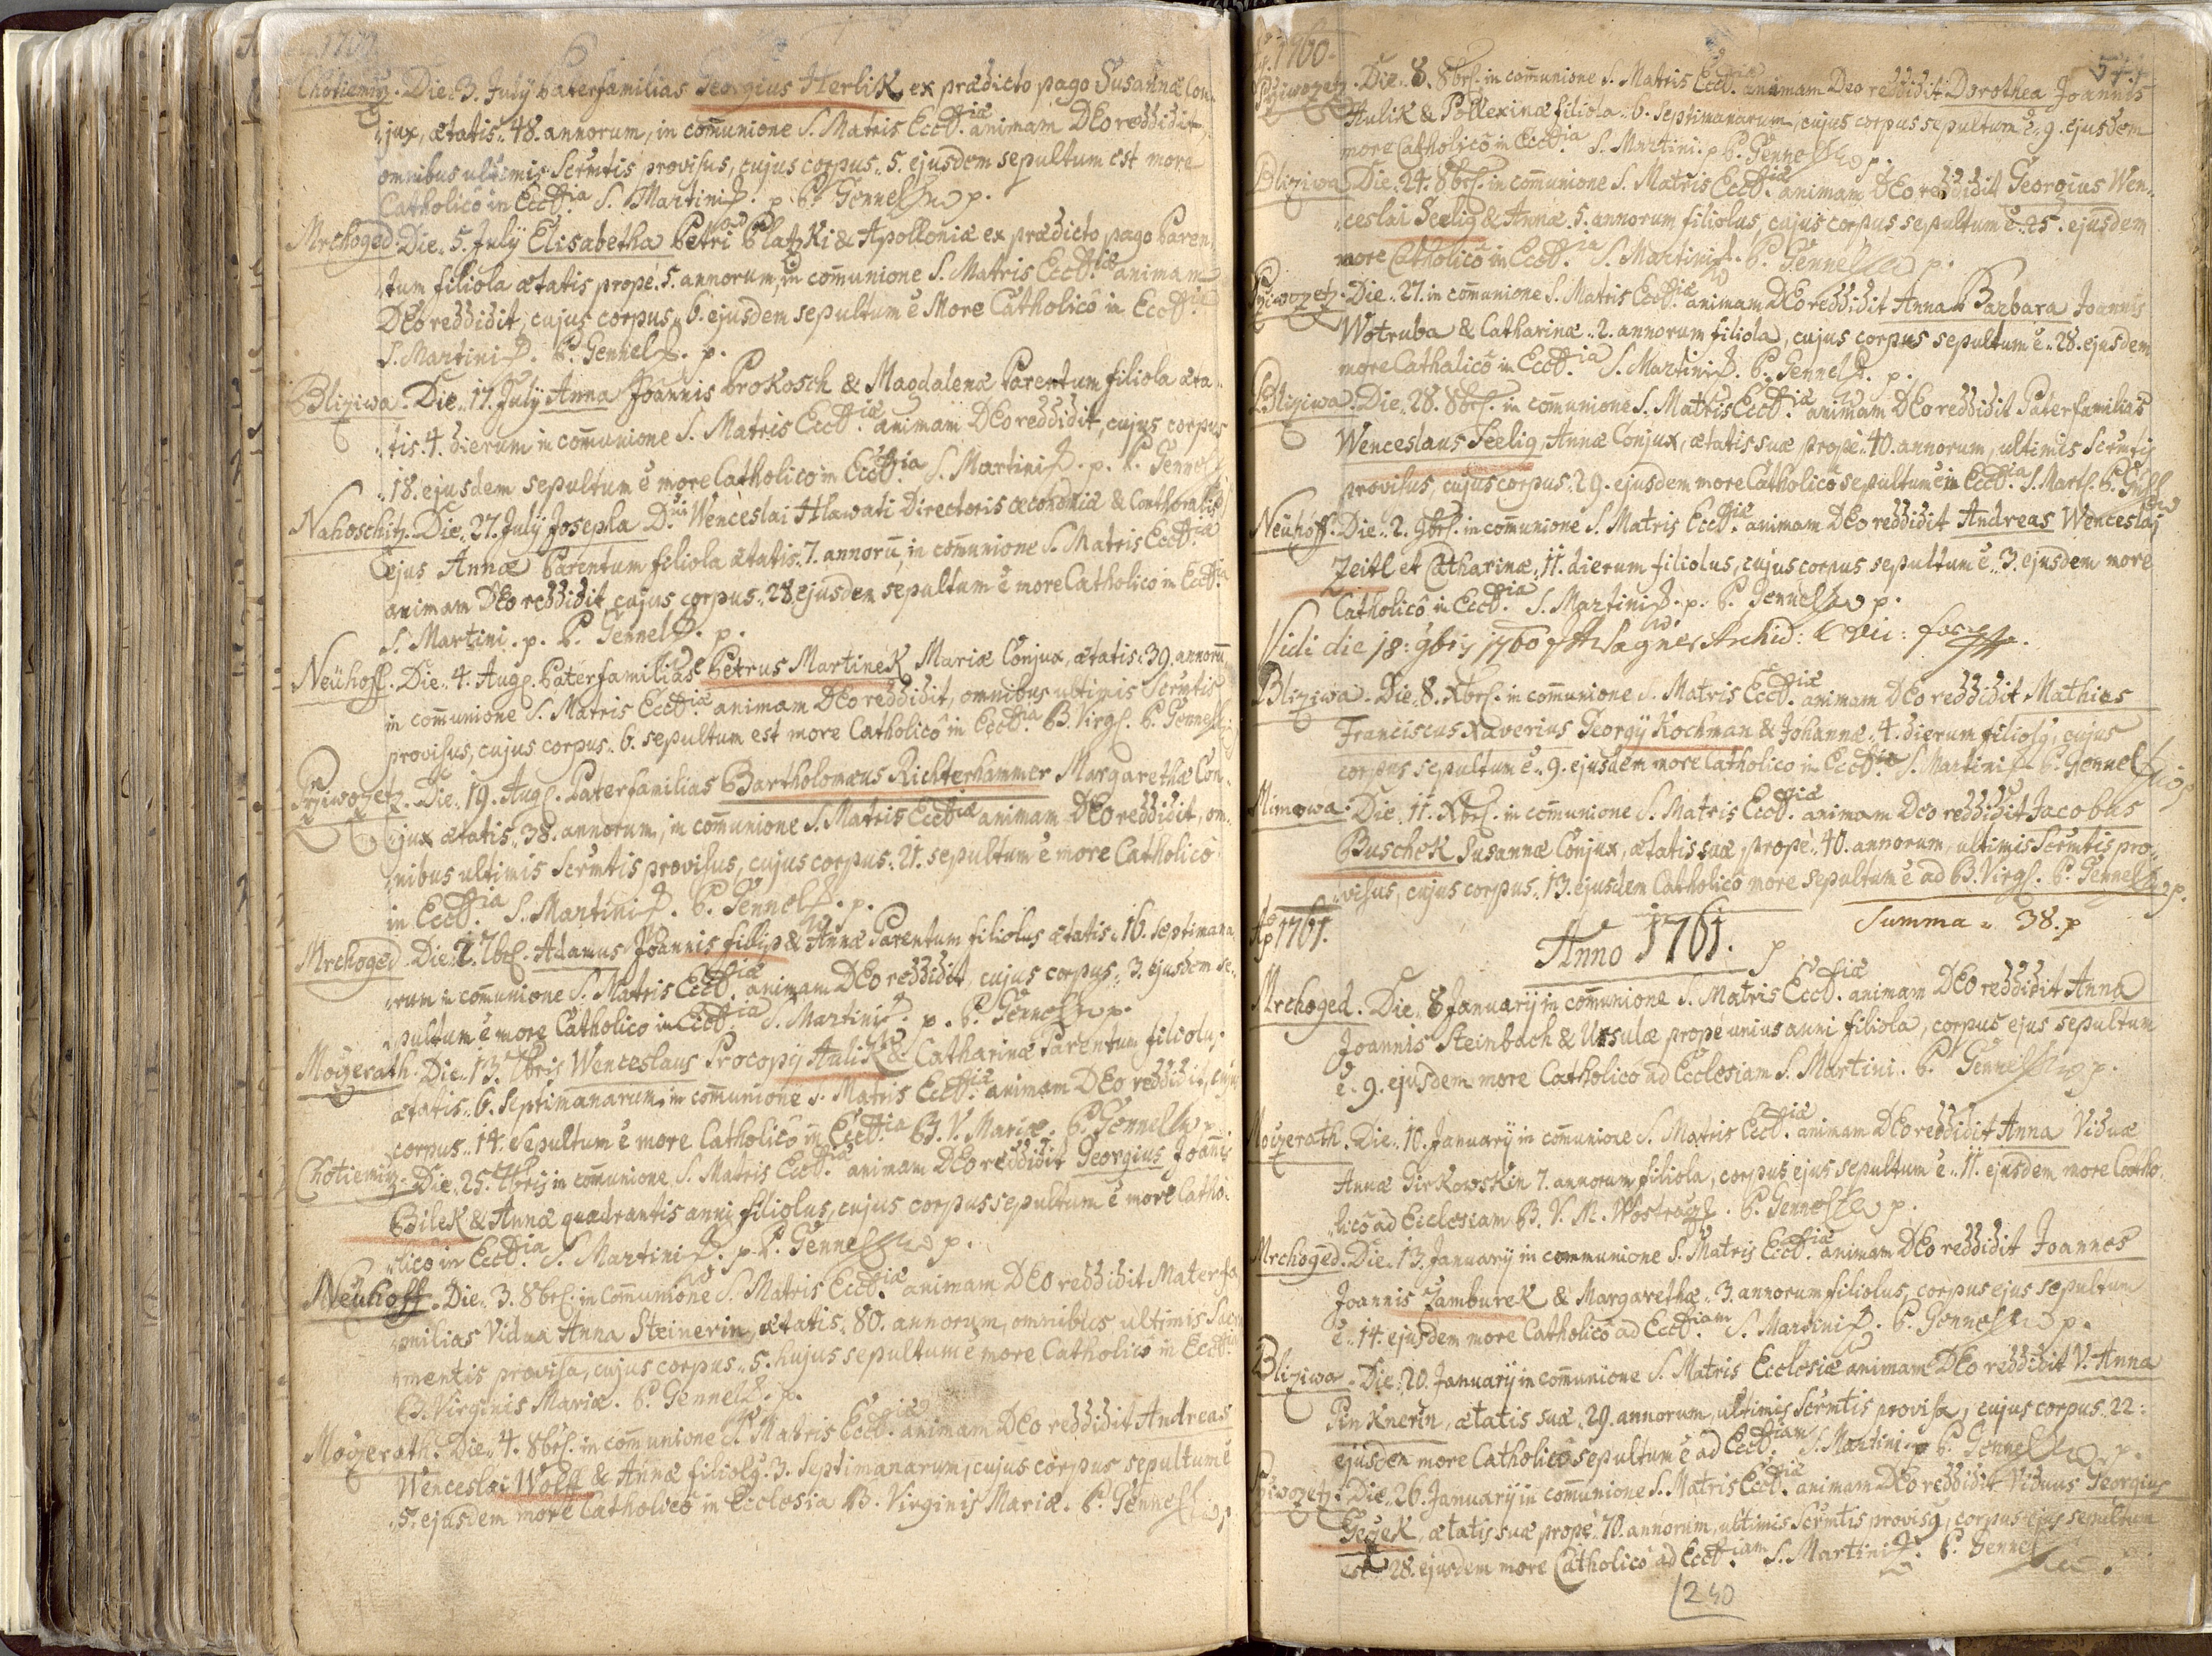 Chotiemitz. Die 3. July Paterfamilias Georgius Herlik, ex prædicto pago Susannæ Con-
jux, ætatis 48. annorum, in comunione S. Matris Eccliæ animam DEo reddidit
omnibus ultimis Scrmtis provisus, cujus corpus 5. ejusdem sepultum est more
Catholicô in Ecclia S. Martini p. P. Gennel p.
Mrchoged Die 5. July Elisabetha Petri Platzki & Apolloniæ ex prædicto pago Paren-
tum filiola ætatis prope 5. annorum, in comunione S. Matris Eccliæ animam
DEo reddidit, cujus corpus 6. ejusdem sepultum ē More Catholicô in Ecclia
S. Martini P. Gennel p.
Bliziwa. Die 17. July Anna Joannis Prokosch & Magdalenæ Parentum filiola æta-
tis 4. dierum in comunione S. Matris Eccliæ animam DEo reddidit, cujus corpus
18. ejusdem sepultum ē more Catholico in Ecclia S. Martini p. P. Gennel
Nahoschitz. Die 27. July Josepha D. Wenceslai Hlawati Directoris œconomiæ & Conthoralis
ejus Annæ Parentum filiola ætatis 7. annorū, in comunione S. Matris Eccliæ
animam DEo reddidit, cujus corpus 28. ejusdem sepultum ē more Catholico in Ecclia
S. Martini p. P. Gennel p.
Neühoff. Die 4. Aug. Paterfamilias Petrus Martinek Mariæ Conjux, ætatis 39. annorū
in comunione S. Matris Eccliæ animam DEo reddidit, omnibus ultimis Scrmtis
provisus, cujus corpus 6. sepultum est more Catholicô in Ecclia B. Virg. P. Gennel
Pziwozetz. Die 19. Aug. Paterfamilias Bartholomæus Richterhammer Margarethæ Con-
jux ætatis 38. annorum, in comunione S. Matris Eccliæ animam DEo reddidit, om-
nibus ultimis Scrmtis provisus, cujus corpus 21. sepultum ē more Catholicô
in Ecclia S. Martini P. Gennel p.
Mrchoged. Die 2. 7br. Adamus Joannis filip & Annæ Parentum filiolus ætatis 16. septimana-
rum in comunione S. Matris Eccliæ animam DEo reddidit, cujus corpus 3. ejusdem se-
pultum ē more Catholico in Ecclia S. Martini p. P. Gennel p.
Mogerath. Die 13. 7bris Wenceslaus Procopÿ Aulik & Catharinæ Parentum filiolus
ætatis 6. septimanarum, in comunione S. Matris Eccliæ animam DEo reddidit, cujus
corpus 14. sepultum ē more Catholicô in Ecclia B. V. Mariæ. P. Gennel p.
Chotiemitz. Die 25. 7bris in comunione S. Matris Eccliæ animam DEo reddidit Georgius Joannis
Bilek & Annæ quadrantis anni filiolus, cujus corpus sepultum ē more Catho-
lico in Ecclia S. Martini p. P. Gennel p.
Neühoff. Die 3. 8br. in Communione S. Matris Eccliæ animam DEo reddidit Materfa-
milias Vidua Anna Steinerin, ætatis 80. annorum, omnibus ultimis Sacra-
mentis provisa, cujus corpus 5. hujus sepultum ē more Catholicô in Ecclia
B. Virginis Mariæ. P. Gennel p.
Mogerath. Die 4. 8br. in comunione S. Matris Eccliæ animam DEo reddidit Andreas
Wenceslai Wolff & Annæ filiolg 3. septimanarum, cujus corpus sepultum ē
5. ejusdem more Catholicô in Ecclesia B. Virginis Mariæ. P. Gennel
1760.
Pziwozetz. Die 8. 8br. in comunione S. Matris Eccliæ animam Deo reddidit Dorothea Joannis
Aulik & Pollexinæ filiola 6. septimanarum, cujus corpus sepultum ē 9. ejusdem
more Catholicô in Ecclia S. Martini p P. Gennel p.
Bliziwa Die 24. 8br. in comunione S. Matris Eccliæ animam DEo reddidit Georgius Wen-
ceslai Seelig & Annæ 5. annorum filiolus, cujus corpus sepultum ē 25. ejusdem
more Catholicô in Ecclia S. Martini P. Gennel p.
Pziwozetz. Die 27. in comunione S. Matris Eccliæ animam DEo reddidit Anna Barbara Joannis
Wotruba & Catharinæ 2. annorum filiola, cujus corpus sepultum ē 28. ejusdem
more Catholicô in Ecclia S. Martini P. Gennel p.
Bliziwa. Die 28. 8br. in comunione S. Matris Eccliæ animam DEo reddidit Paterfamilias
Wenceslaus Seelig, Annæ Conjux, ætatis suæ prope 40. annorum, ultimis Scrmtis
provisus, cujus corpus 29. ejusdem more Catholicô sepultum ē in Ecclia S. Mart. P.
Neühoff. Die 2. 9br. in comunione S. Matris Eccliæ animam DEo reddidit Andreas Wenceslai
Zeitl et Catharinæ, 11. dierum filiolus, cujus corpus sepultum ē 3. ejusdem more
Catholicô in Ecclia S. Martini p. P. Gennel p.
Vidi die 18: 9bris 1760
Bliziwa. Die 8. Xbr. in comunione S. Matris Eccliæ animam DEo reddidit Mathias
Franciscus Xaverius Georgÿ Kochman & Johannæ 4. dierum filiolg, cujus
corpus sepultum ē 9. ejusdem more Catholico in Ecclia S. Martini P. Gennel
Mimowa. Die 11. Xbr. in comunione S. Matris Eccliæ animam Deo reddidit Jacobus
Buschek Susannæ Conjux, ætatis suæ propè 40. annorum, ultimis Scrmtis pro-
visus, cujus corpus 13. ejusdem Catholicô more sepultum ē ad B. Virg. P. Gennel p.
Summa 38. p
Ao 1761.
Anno 1761.
Mrchoged. Die 8 Januarÿ in comunione S. Matris Eccliæ animam DEo reddidit Anna
Joannis Steinbach & Ursulæ propè unius anni filiola, corpus ejus sepultum
ē 9. ejusdem more Catholicô ad Ecclesiam S. Martini. P. Gennel p.
Mogerath. Die 10. Januarÿ in comunione S. Matris Eccliæ animam DEo reddidit Anna Viduæ
Annæ Girkowskin 7. annorum filiola, corpus ejus sepultum ē 11. ejusdem more Catho-
licô ad Ecclesiam B. V. M. P. Gennel p.
Mrchoged. Die 13. Januarÿ in communione S. Matris Eccliæ animam DEo reddidit Joannes
Joannis Jamburek & Margarethæ 3. annorum filiolus, corpus ejus sepultum
ē 14. ejusdem more Catholicô ad Eccliam S. Martini P. Gennel p.
Bliziwa. Die 20. Januarÿ in comunione S. Matris Ecclesiæ animam DEo reddidit V. Anna
Pinknerin, ætatis suæ 29. annorum, ultimis Scrmtis provisa, cujus corpus 22:
ejusdem more Catholicô sepultum ē ad Eccliam S. Martini P. Gennel p.
Pziwozetz. Die 26. Januarÿ in comunione S. Matris Eccliæ animam DEo reddidit Viduus Georgius
Gegek, ætatis suæ propè 70. annorum, ultimis Scrmtis provisg, corpus ejus sepultum
est 28. ejusdem more Catholicô ad Eccliam S. Martini P. Gennel
240